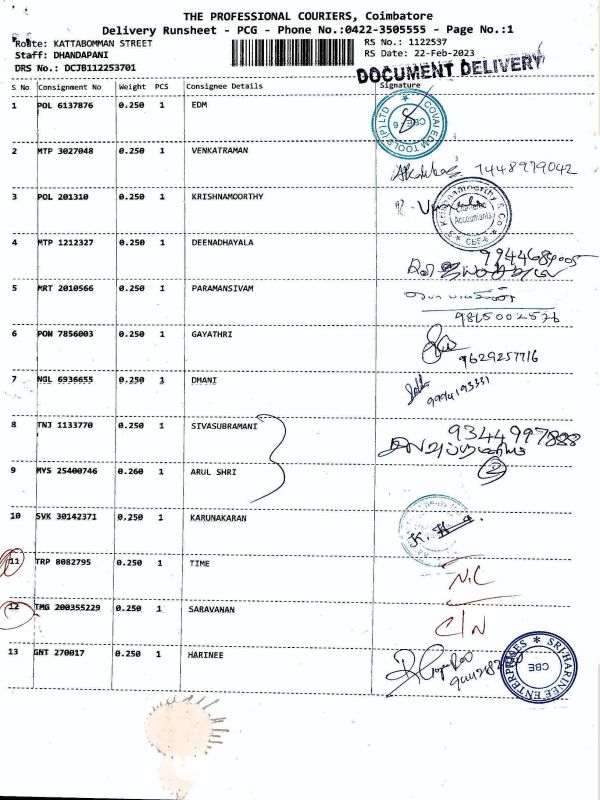 THE PROFESSIONAL COURIERS, Coimbatore
Delivery Runsheet - PCG - Phone No.:0422-3505555 - Page No.:1
Route: KATTABOMMAN STREET
RS No.: 1122537
Staff: DHANDAPANI
RS Date: 22-Feb-2023
DRS No.: DCJB112253701
DOCUMENT DELIVERY
S No Consignment No Weight PCS Consignee Details Signature
1 POL 6137876 0.250 1 EDM
COVAI EDM TOOLS (P) LTD CBE-6
2 MTP 3027048 0.250 1 VENKATRAMAN
7448979042
3 POL 201310 0.250 1 KRISHNAMOORTHY
Krishnamoorthy & Co Chartered Accountants CBE-6
4 MTP 1212327 0.250 1 DEENADHAYALA
9944689005
5 MRT 2010566 0.250 1 PARAMANSIVAM
9865002526
6 PON 7856003 0.250 1 GAYATHRI
9629257716
7 NGL 6936655 0.250 1 DMANI
8 TNJ 1133770 0.250 1 SIVASUBRAMANI
9344997888
9 MYS 25400746 0.260 1 ARUL SHRI
2
10 SVK 30142371 0.250 1 KARUNAKARAN
11 TRP 8082795 0.250 1 TIME
N.C
12 TMG 200355229 0.250 1 SARAVANAN
C/N
13 GNT 270017 0.250 1 HARINEE
SRI HARINEE ENTERPRISES CBE